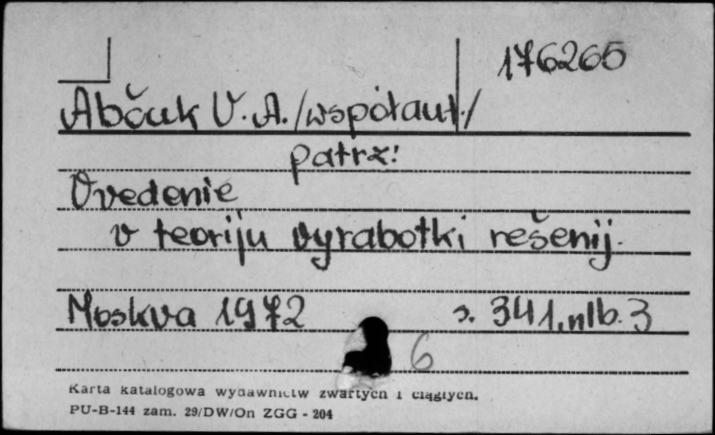 176265
Abčuk V. A. /współaut./
patrz:
Vvedenie
v teoriju vyrabotki rešenij.
Moskva 1972 s. 341, nlb. 3
6
Karta katalogowa wydawnictw zwartych i ciągłych.
PU-B-144 zam. 29/DW/On ZGG - 204